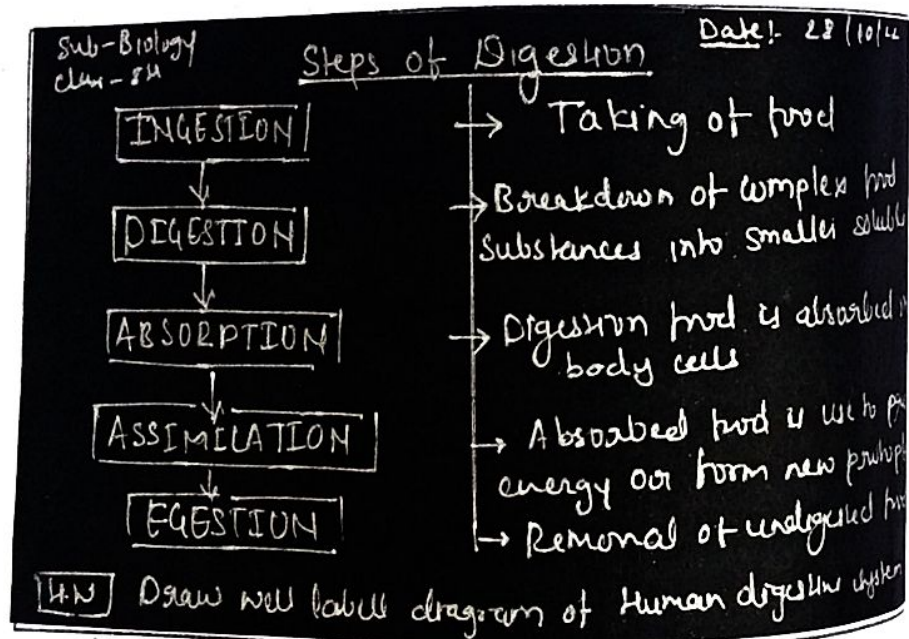 Sub-Biology
Class-8H
Date:- 28/10/
Steps of Digestion
INGESTION
→ Taking of food
DIGESTION
→ Breakdown of complex food
substances into smaller
ABSORPTION
→ Digestion food is absorbed
body cells
ASSIMILATION
→ Absorbed food is use to
energy or form new
EGESTION
→ Removal of undigested
H.W Draw well labell diagram of Human digestive system